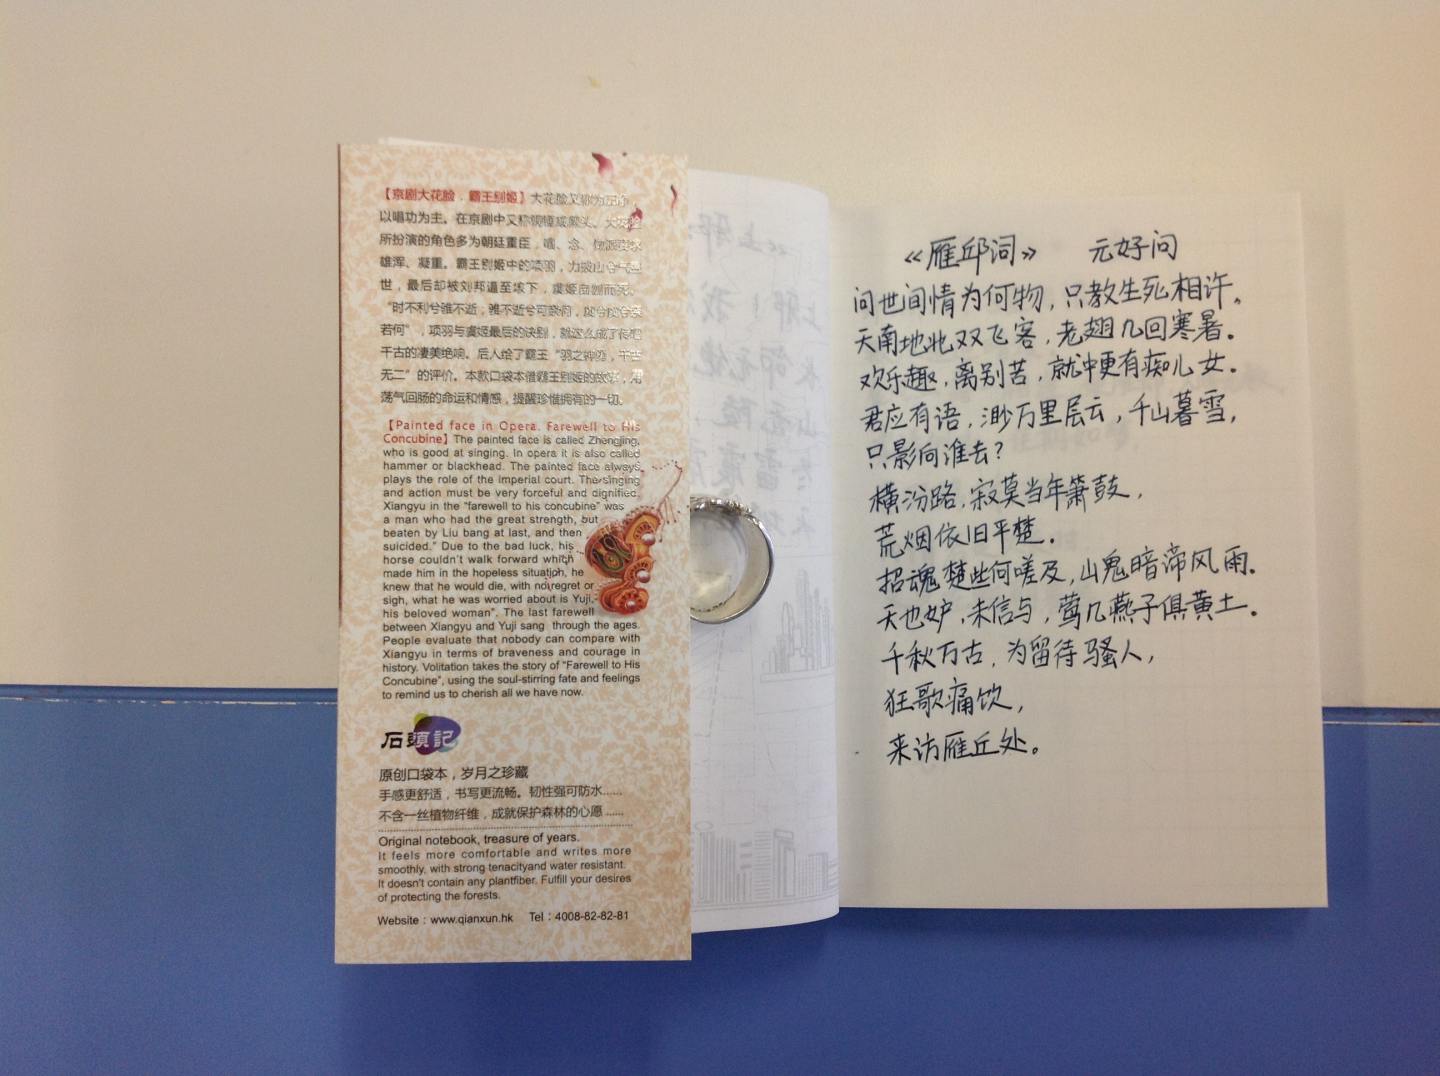 【京剧大花脸．霸王别姬】大花脸又称为正净，
以唱功为主。在京剧中又称铜锤或黑头。大花脸
所扮演的角色多为朝廷重臣，唱、念、做派要求
雄浑、凝重。霸王别姬中的项羽，力拔山兮气盖
世，最后却被刘邦逼至垓下，虞姬自刎而死。
“时不利兮骓不逝，骓不逝兮可奈何，虞兮虞兮奈
若何”，项羽与虞姬最后的诀别，就这么成了传唱
千古的凄美绝响。后人给了霸王“羽之神勇，千古
无二”的评价。本款口袋本借霸王别姬的故事，用
荡气回肠的命运和情感，提醒珍惜拥有的一切。
【Painted face in Opera. Farewell to His
Concubine】The painted face is called Zhengjing,
who is good at singing. In opera it is also called
hammer or blackhead. The painted face always
plays the role of the imperial court. The singing
and action must be very forceful and dignified.
Xiangyu in the “farewell to his concubine” was
a man who had the great strength, but
beaten by Liu bang at last, and then
suicided.” Due to the bad luck, his
horse couldn't walk forward which
made him in the hopeless situation, he
knew that he would die, with no regret or
sigh, what he was worried about is Yuji,
his beloved woman”. The last farewell
between Xiangyu and Yuji sang through the ages.
People evaluate that nobody can compare with
Xiangyu in terms of braveness and courage in
history. Volitation takes the story of “Farewell to His
Concubine”, using the soul-stirring fate and feelings
to remind us to cherish all we have now.
石頭記
原创口袋本，岁月之珍藏
手感更舒适，书写更流畅。韧性强可防水......
不含一丝植物纤维，成就保护森林的心愿......
Original notebook, treasure of years.
It feels more comfortable and writes more
smoothly, with strong tenacityand water resistant.
It doesn't contain any plantfiber. Fulfill your desires
of protecting the forests.
Website：www.qianxun.hk Tel：4008-82-82-81
《雁邱词》 元好问
问世间情为何物，只教生死相许。
天南地北双飞客，老翅几回寒暑。
欢乐趣，离别苦，就中更有痴儿女。
君应有语，渺万里层云，千山暮雪，
只影向谁去？
横汾路，寂莫当年箫鼓，
荒烟依旧平楚。
招魂楚些何嗟及，山鬼暗啼风雨。
天也妒，未信与，莺儿燕子俱黄土。
千秋万古，为留待骚人，
狂歌痛饮，
来访雁丘处。